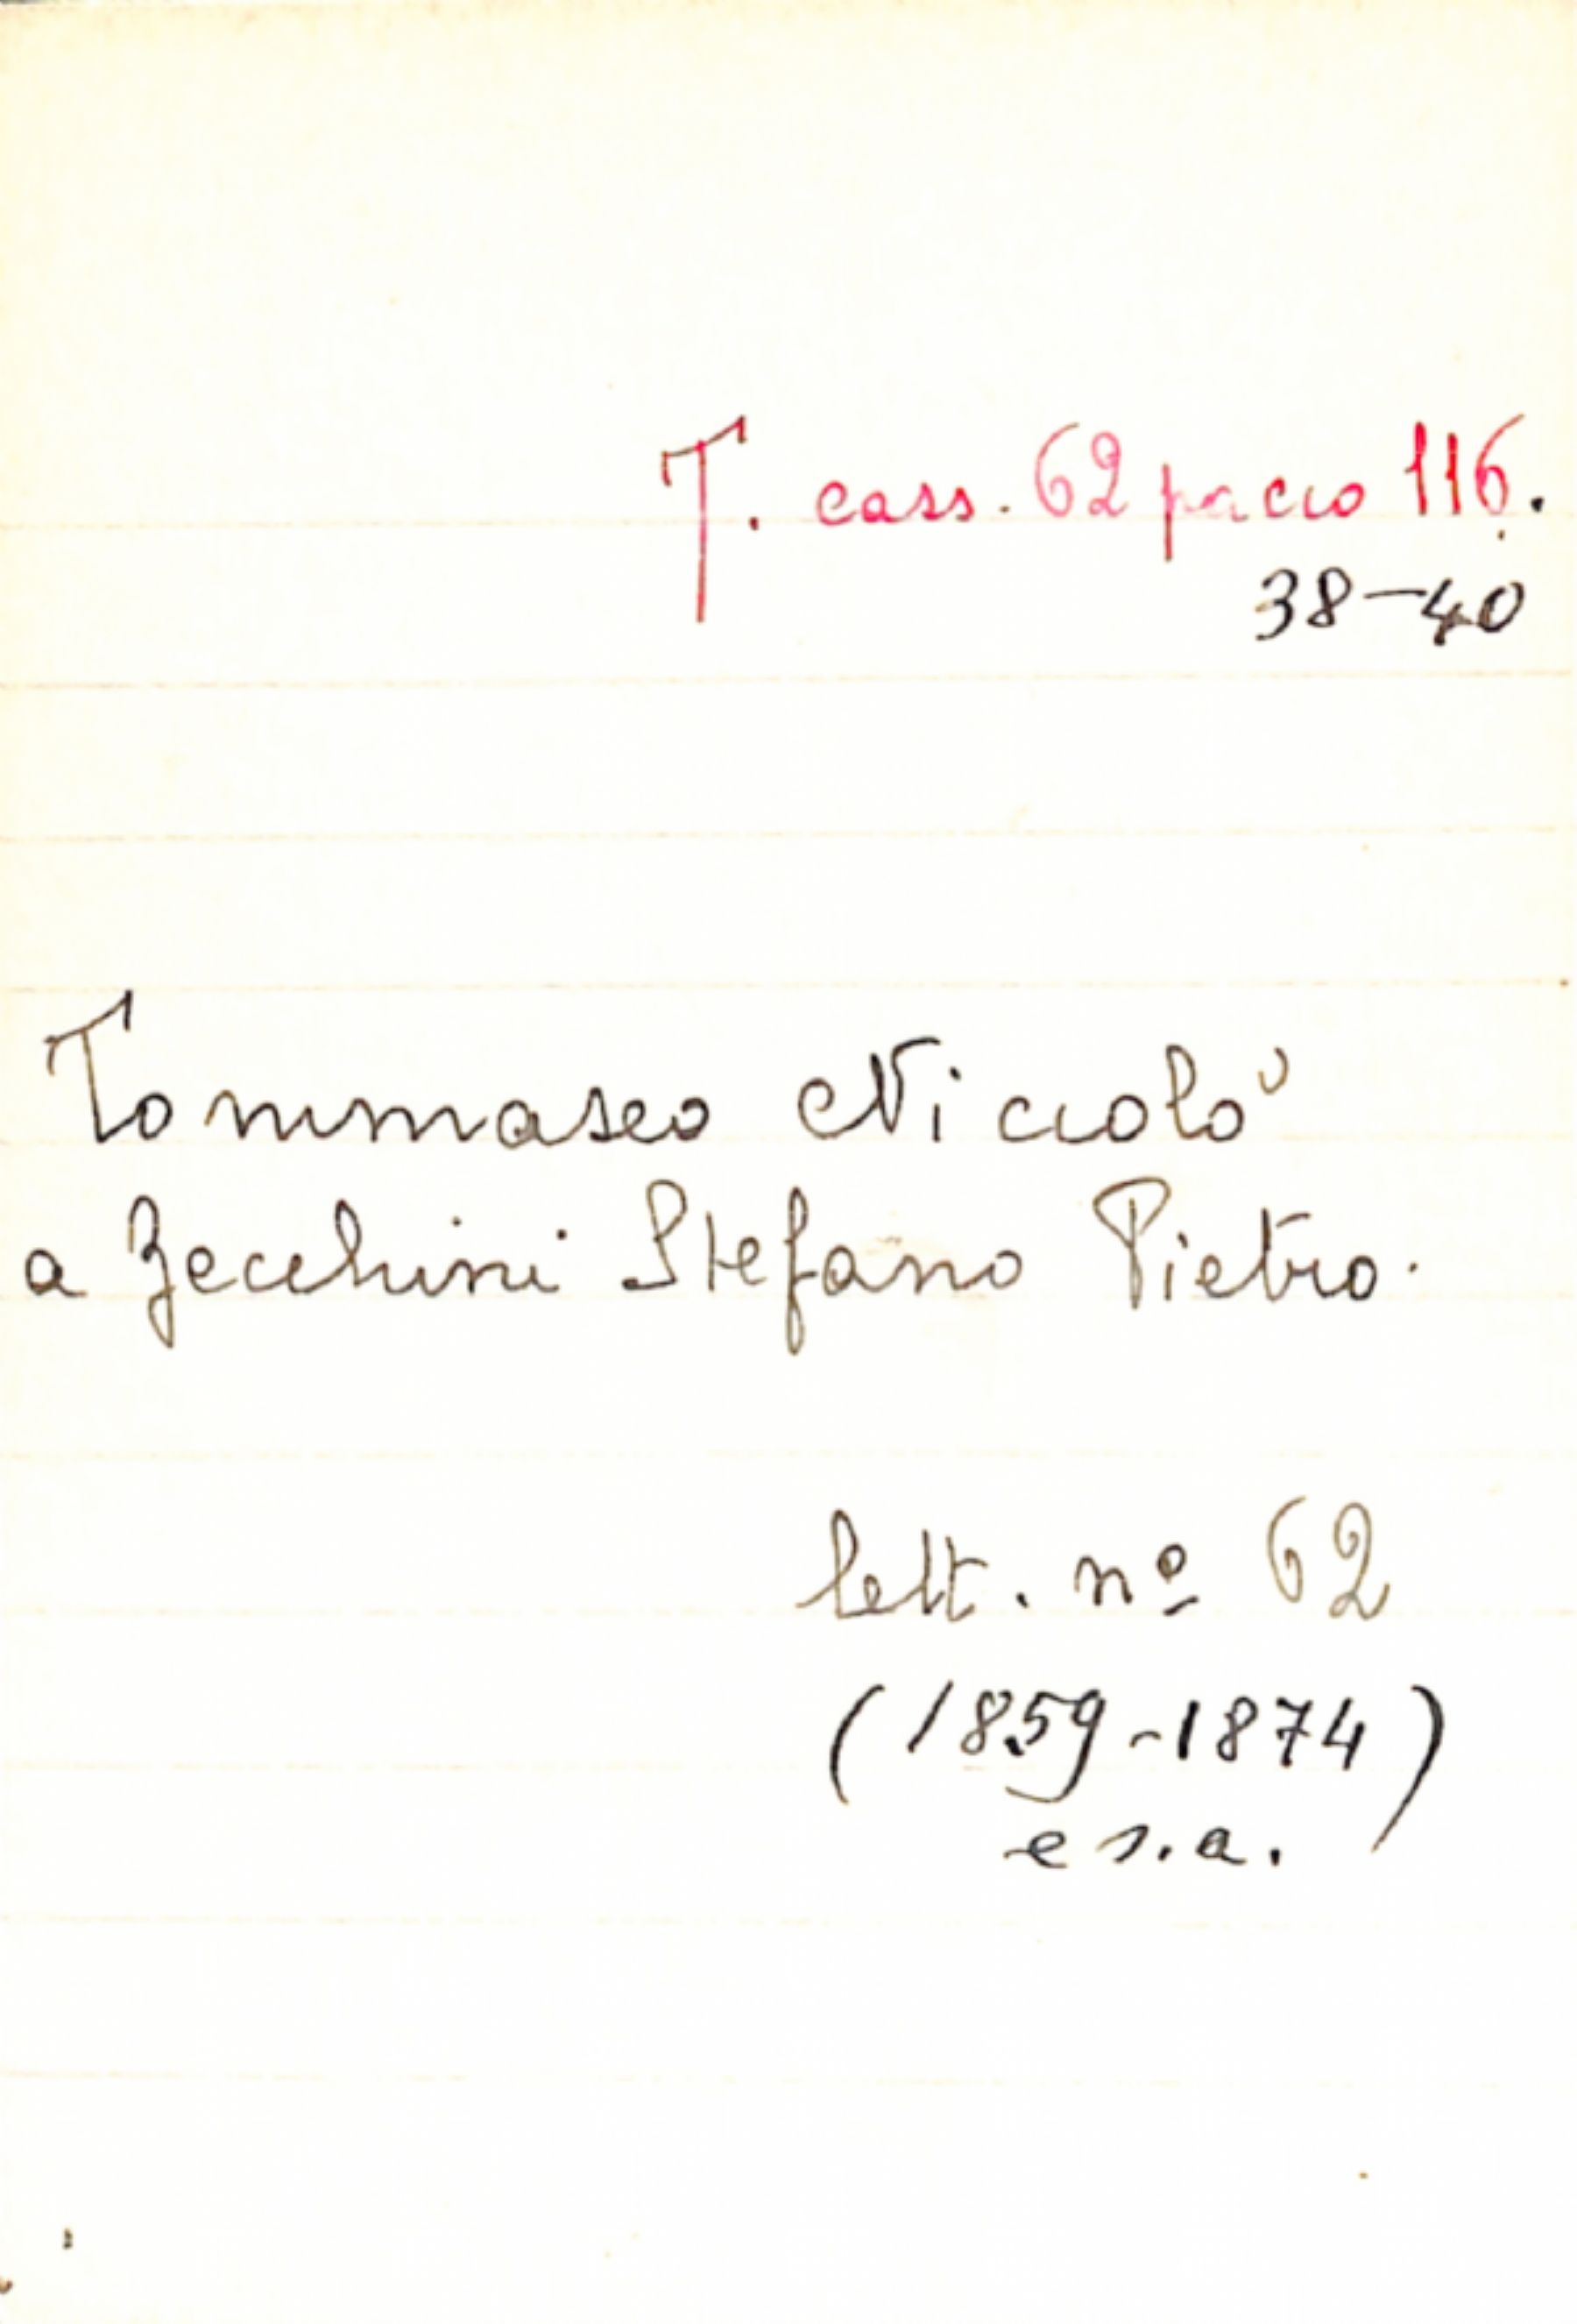 T. cass. 62 pacco 116.
38-40
Tommaseo Niccolò
a Zecchini Stefano Pietro.
lett. nº 62
(1859-1874)
e s.a.